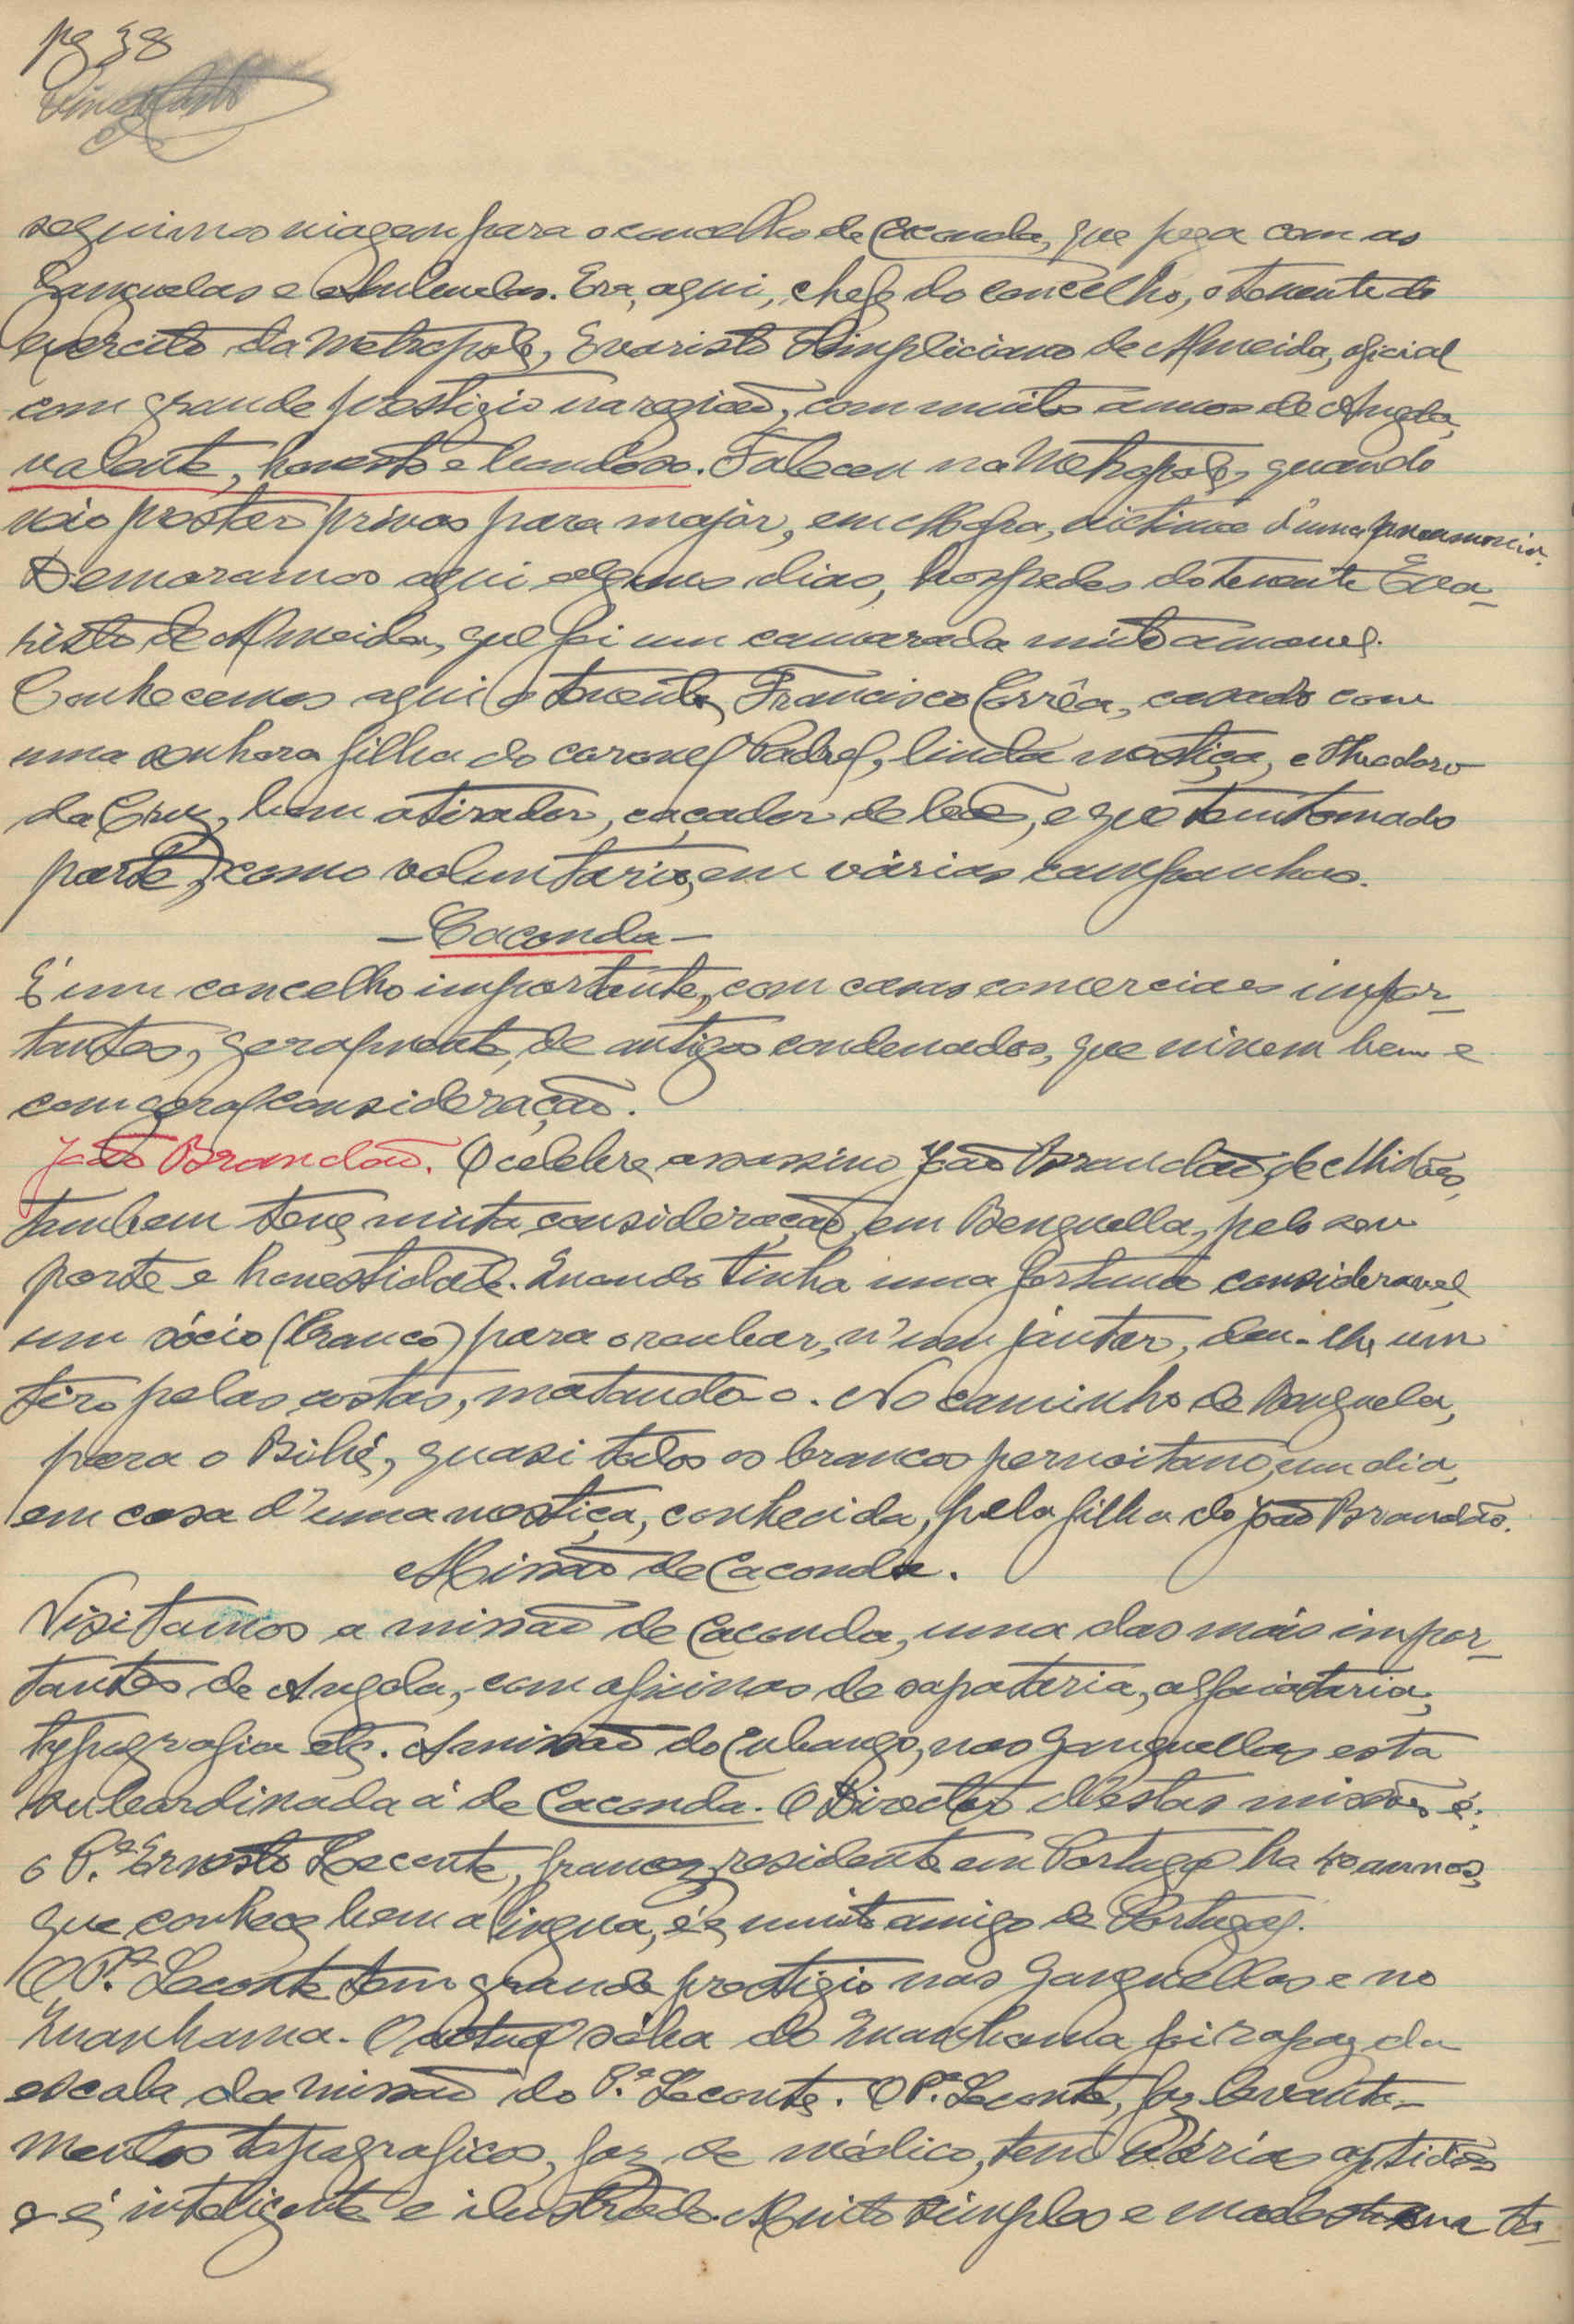 pg 38
seguimos viagem para o concelho de Caconda, que pega com as
Ganguelas e Ambuelas. Era, aqui, chefe do concelho, o tenente do
exercito da Metropole, Evaristo Simpliciano de Almeida, oficial
com grande prestigio na região, com muitos annos de Angola,
valente, honesto e bondoso. Faleceu na Metropole, quando
não prestar provas para major, em Mafra, victima d'uma pneumonia.
Demoramos aqui alguns dias, hospedes do tenente Eva-
risto de Almeida, que foi um camarada muito amavel.
Conhecemos aqui o tenente, Francisco Corrêa, casado com
uma senhora filha do coronel Padrel, linda mestiça, e Theodoro
da Cruz, bom atirador, caçador de leões, e que tem tomado
parte, como voluntario, em várias campanhas.
— Caconda —
É um concelho importante, com casas comerciaes impor-
tantes, geralmente, de antigos condenados, que vivem bem e
com geral consideração.
João Brandão. O celebre assassino João Brandão, de Midões,
tambem teve muita consideração, em Benguella, pelo seu
porte e honestidade. Quando tinha uma fortuna consideravel,
um sócio (branco) para o roubar, n'um jantar, deu-lhe um
tiro pelas costas, matando-o. No caminho de Benguela,
para o Bihé, quasi todos os brancos pernoitam, um dia,
em casa d'uma mestiça, conhecida, pela filha do João Brandão.
Missão de Caconda.
Visitamos a missão de Caconda, uma das mais impor-
tantes de Angola, com oficinas de sapataria, alfaiataria,
typografia etc. A missão do Cubango, nas Ganguellas esta
subordinada á de Caconda. O Director d'estas missões é:
o P.e Ernesto Lecomte, francez, residente em Portugal ha 40 annos,
que conhece bem a lingua, é muito amigo de Portugal.
O P.e Leconte tem grande prestigio nas Ganguellas e no
Quanhama. O actual sóba do Quanhama foi rapaz da
escola da missão do P.e Leconte. O P.e Leconte, faz levanta-
mentos topograficos, faz de médico, tem várias aptidões
e é inteligente e ilustrado. Muito simples e modesto na to-